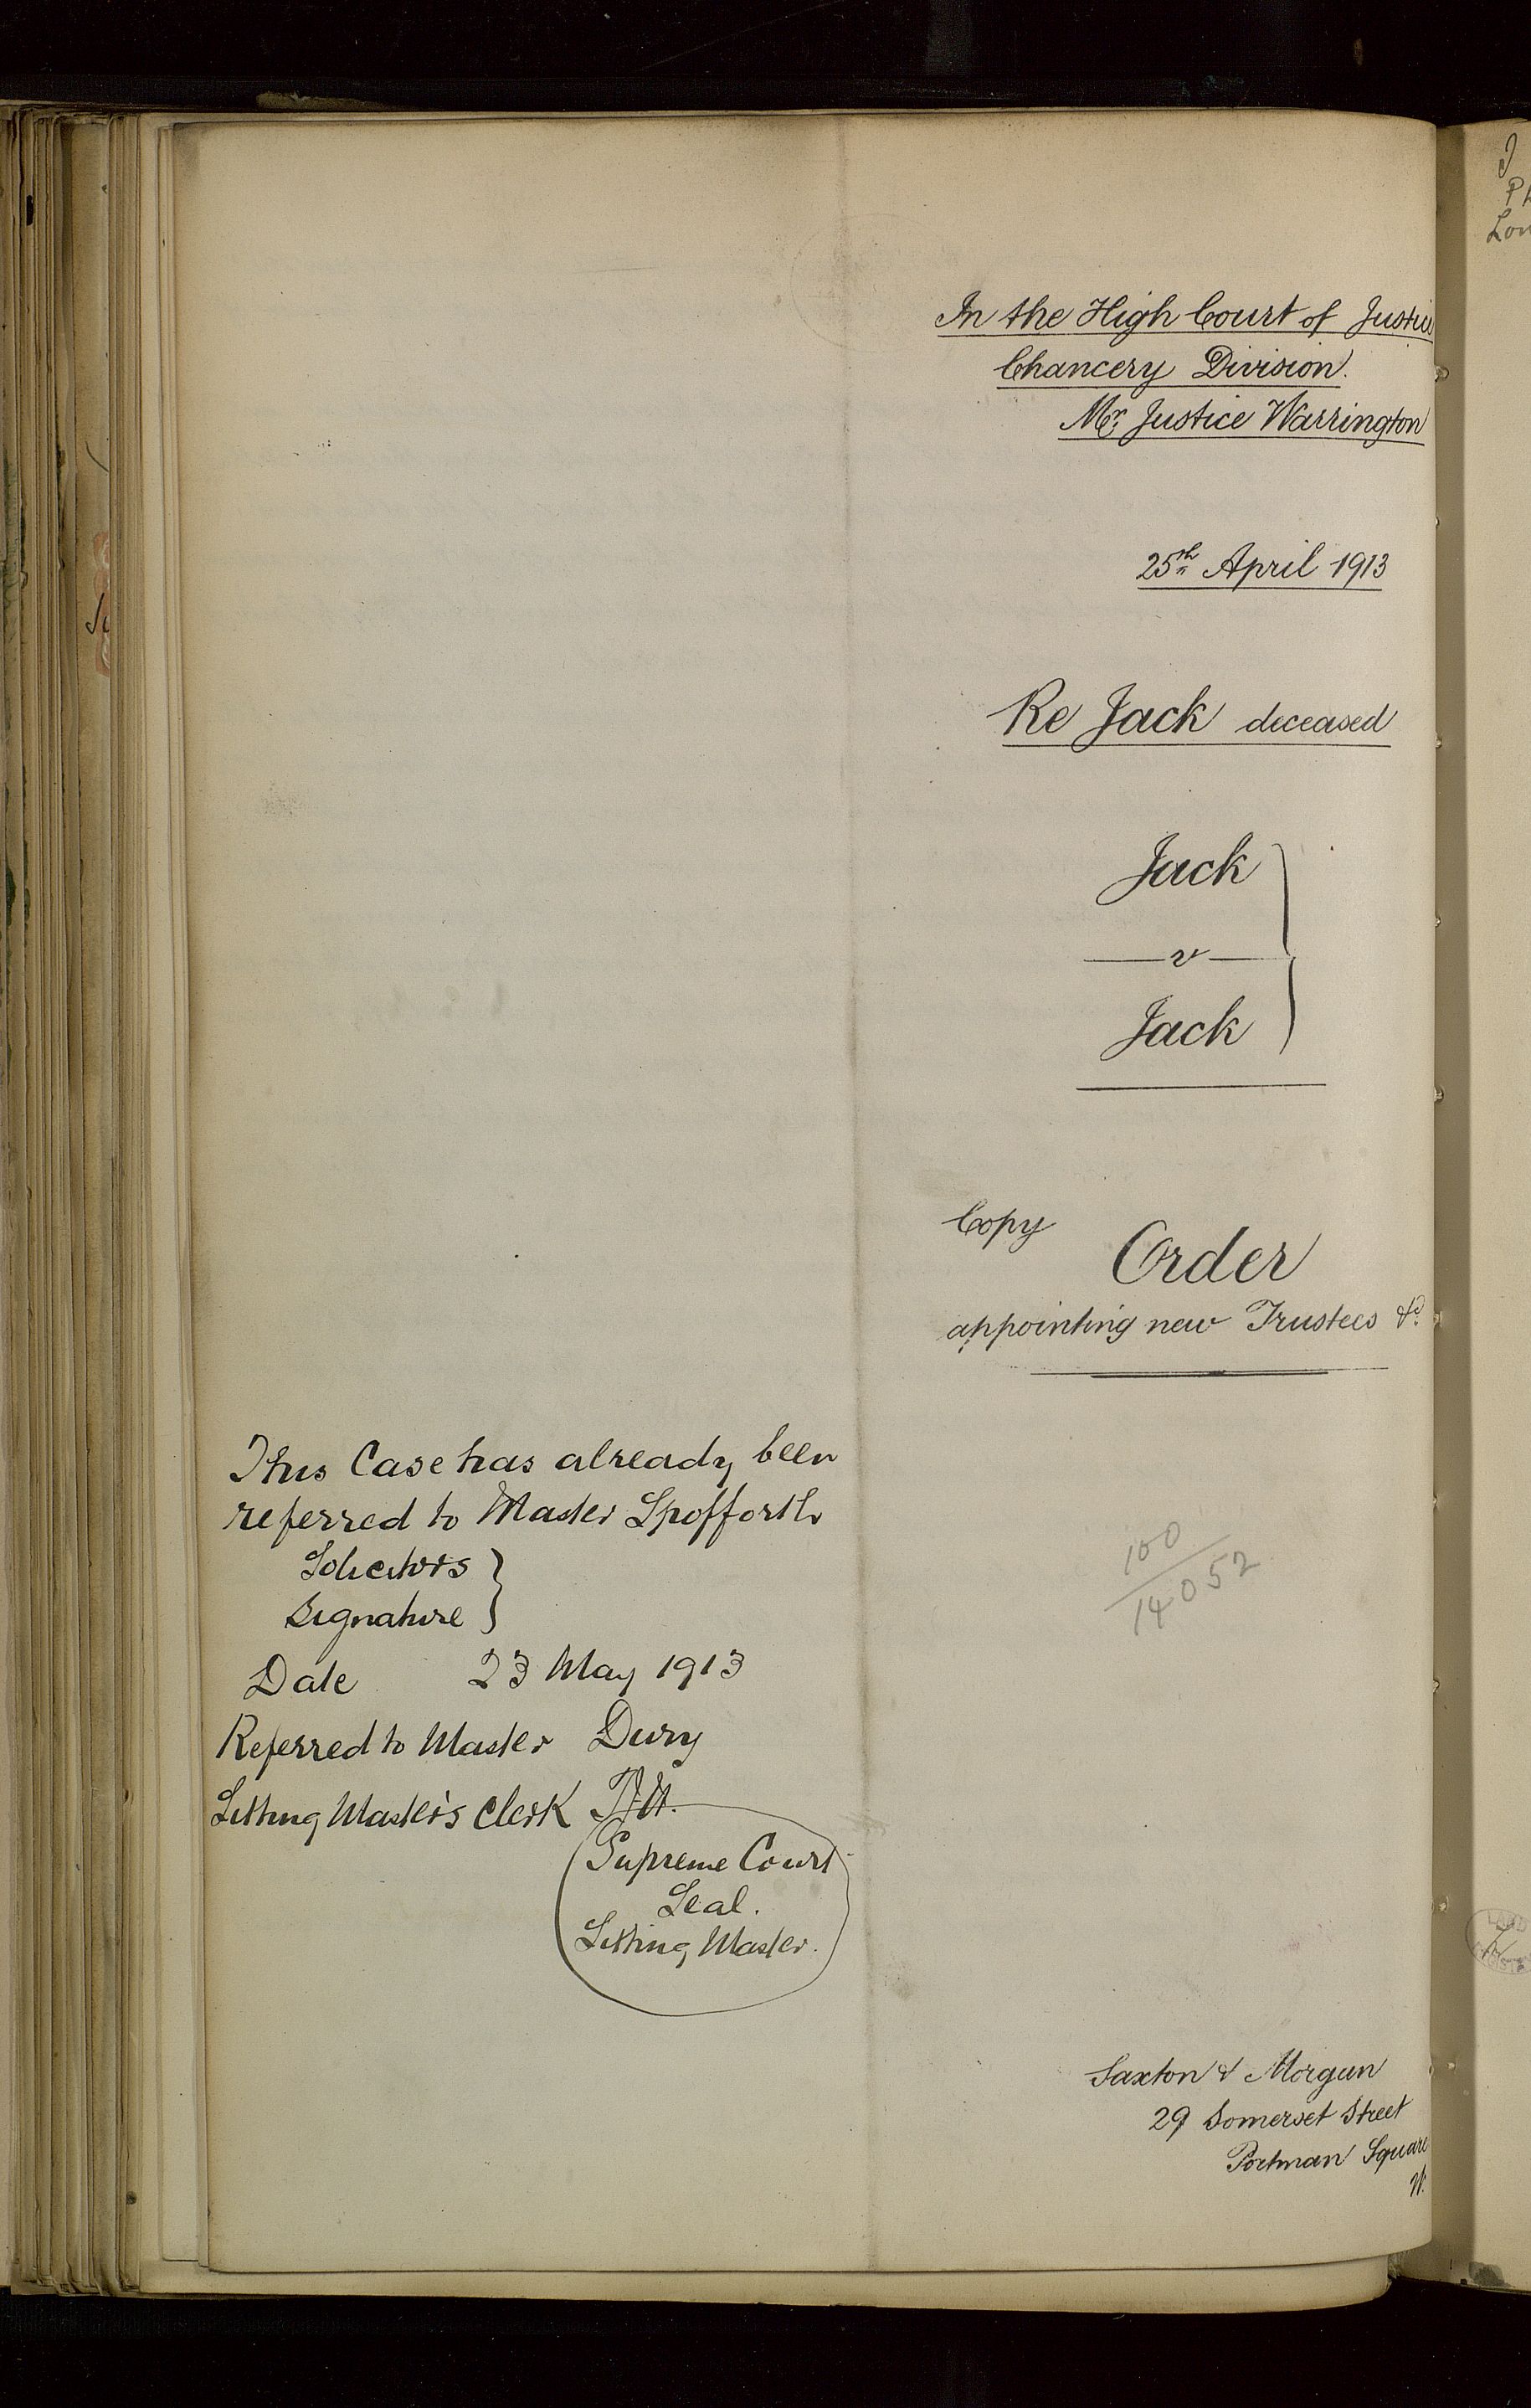 In the High Court of Justice
Chancery Division.
Mr. Justice Warrington
25th April 1913
Re Jack deceased
Jack
v
Jack
Copy
Order
appointing new Trustees &c.
100
14052
Saxton & Morgan
29 Somerset Street
Portman Square
W.
This Case has already been
referred to Master Spofforth
Solicitors
Signature
Date 23 May 1913
Referred to Master Dury
Sitting Master's Clerk
Supreme Court
Seal.
Sitting Master.